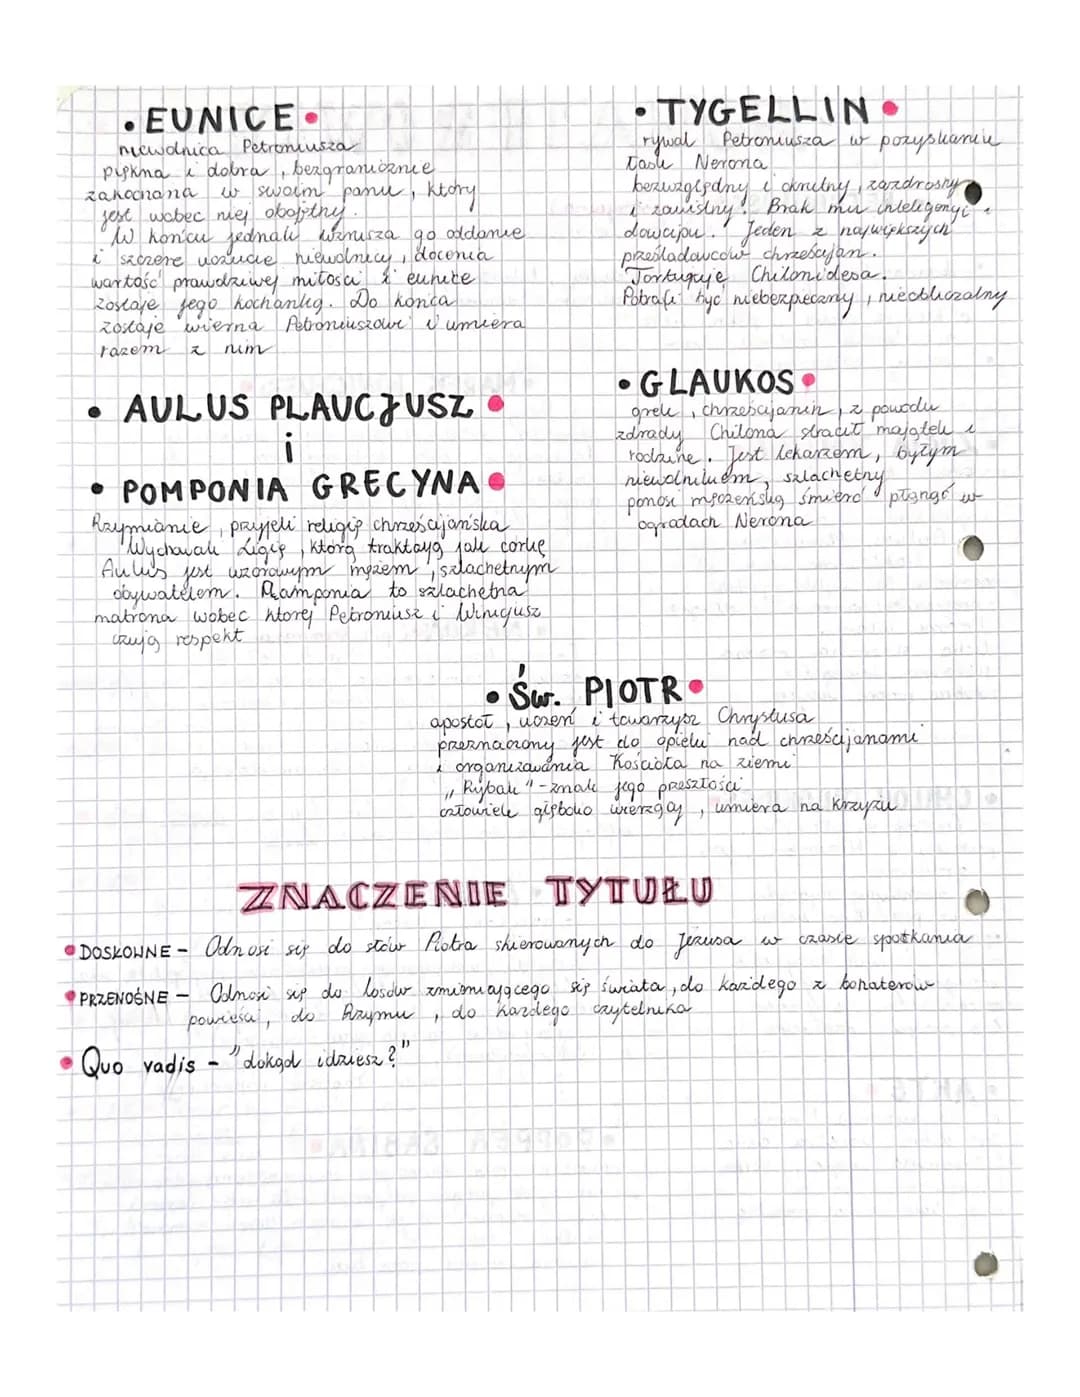 • EUNICE •
niewolnica Petroniusza
piękna i dobra, bezgranicznie
zakochana w swoim panu, który
jest wobec niej obojętny.
W końcu jednak wzrusza go oddanie
i szczere uczucie niewolnicy, docenia
wartość prawdziwej miłości i eunice
zostaje jego kochanką. Do końca
zostaje wierna Petroniuszowi i umiera
razem z nim
• AULUS PLAUCJUSZ •
i
• POMPONIA GRECYNA •
Rzymianie, przyjęli religię chrześcijańska
Wychowali Ligię, którą traktayą jak corkę
Aulus jest wzorowym mężem, szlachetnym
obywatelem. Pamponia to szlachetna
matrona wobec ktorej Petroniusz i Winicjusz
czują respekt
• TYGELLIN •
rywal Petroniusza w pozyskaniu
łask Nerona
bezwzględny i okrutny, zazdrosny
i zawistny. Brak mu inteligencji i
dowcipu. Jeden z największych
prześladowców chrześcijan.
Torturuje Chilonidesa.
Potrafi być niebezpieczny, nieobliczalny
• GLAUKOS •
grek, chrześcijanin, z powodu
zdrady Chilona stracił majątek i
rodzinę. Jest lekarzem, byłym
niewolnikiem, szlachetny
ponosi męczeńską śmierć płonąć w
ogrodach Nerona
• Św. PIOTR •
apostoł, uczeń i towarzysz Chrystusa
przeznaczony jest do opieki nad chrześcijanami
i organizowania Kościoła na ziemi
„Rybak" - znak jego przeszłości
człowiek głęboko wierzący, umiera na krzyżu
ZNACZENIE TYTUŁU
• DOSŁOWNE - Odnosi się do słów Piotra skierowanych do Jezusa w czasie spotkania
• PRZENOŚNE - Odnosi się do losów zmieniającego się świata, do każdego z bohaterów
powieści, do Rzymu, do każdego czytelnika
• Quo vadis - "dokąd idziesz?"